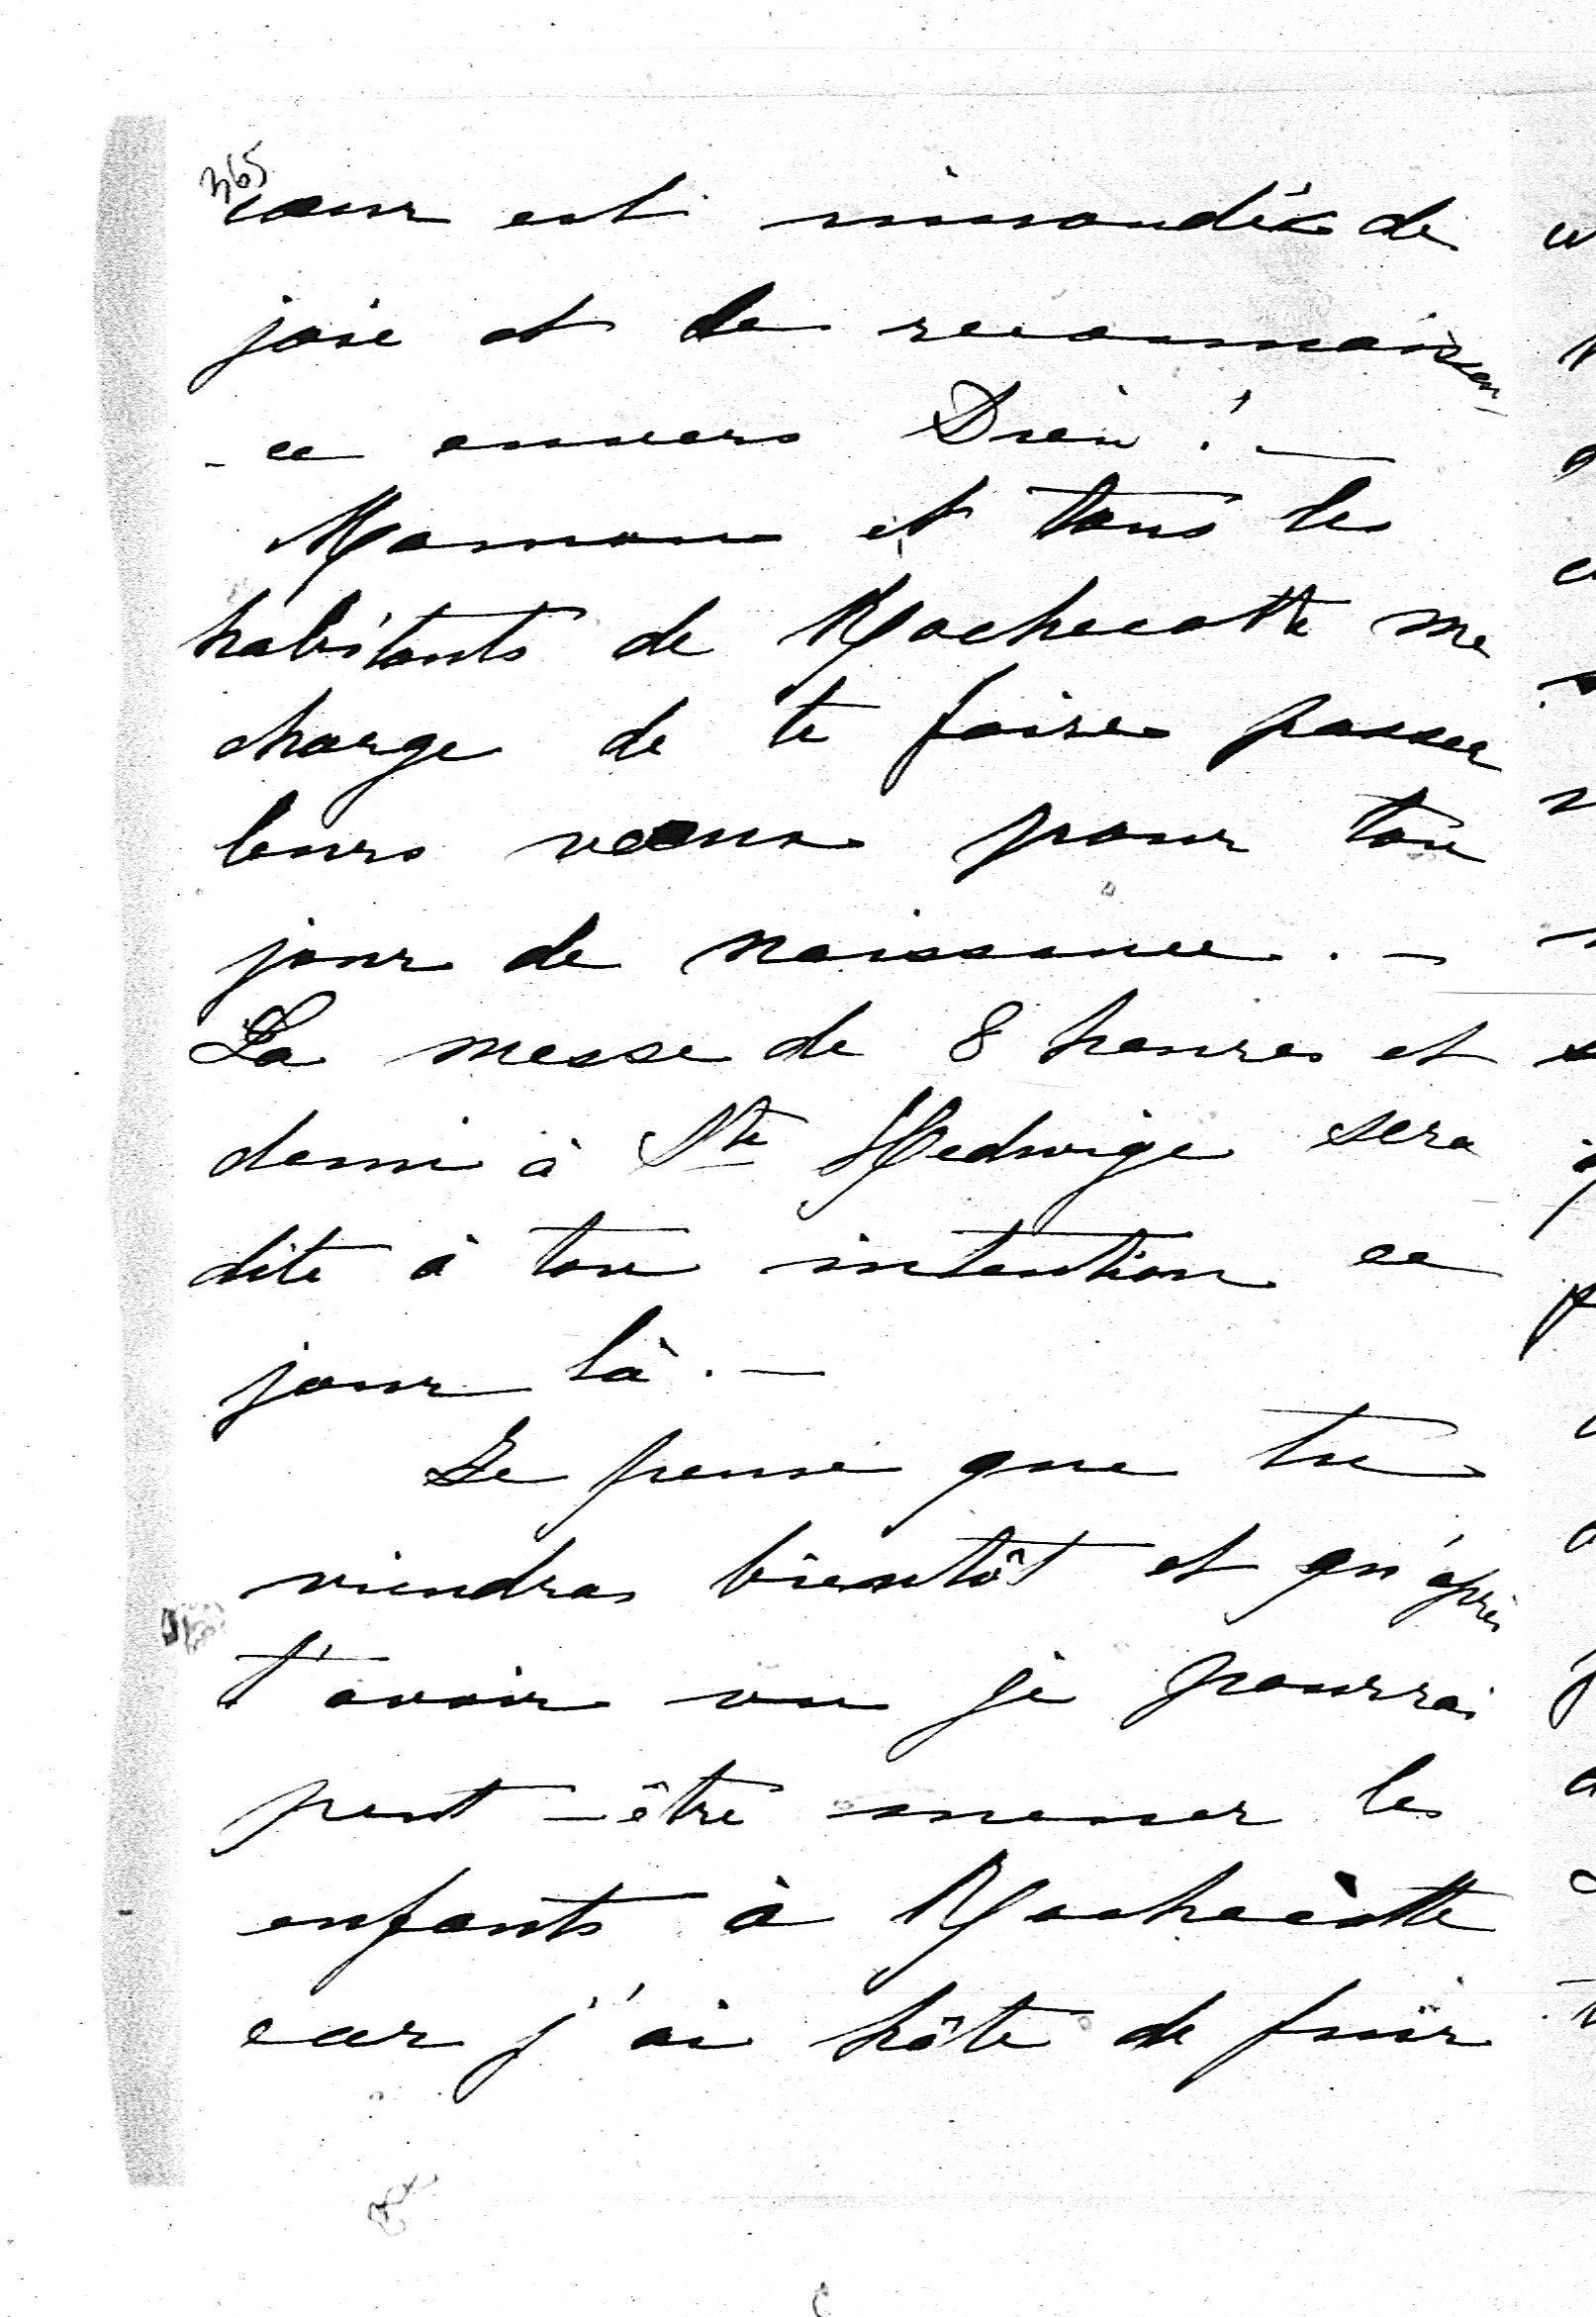 365
cœur est innondée de
joie et de reconnaissan-
-ce envers Dieu ! —
Maman et tous les
habitants de Rochecotte me
charge de te faire passer
leurs vœux pour ton
jour de naissance. —
La messe de 8 heures et
demi à Ste Hedwige sera
dite à ton intention ce
jour là. —
Je pense que tu
viendras bientôt et qu'après
t'avoir vu je pourrai
peut-être mener les
enfants à Rochecotte
car j'ai hâte de fuir